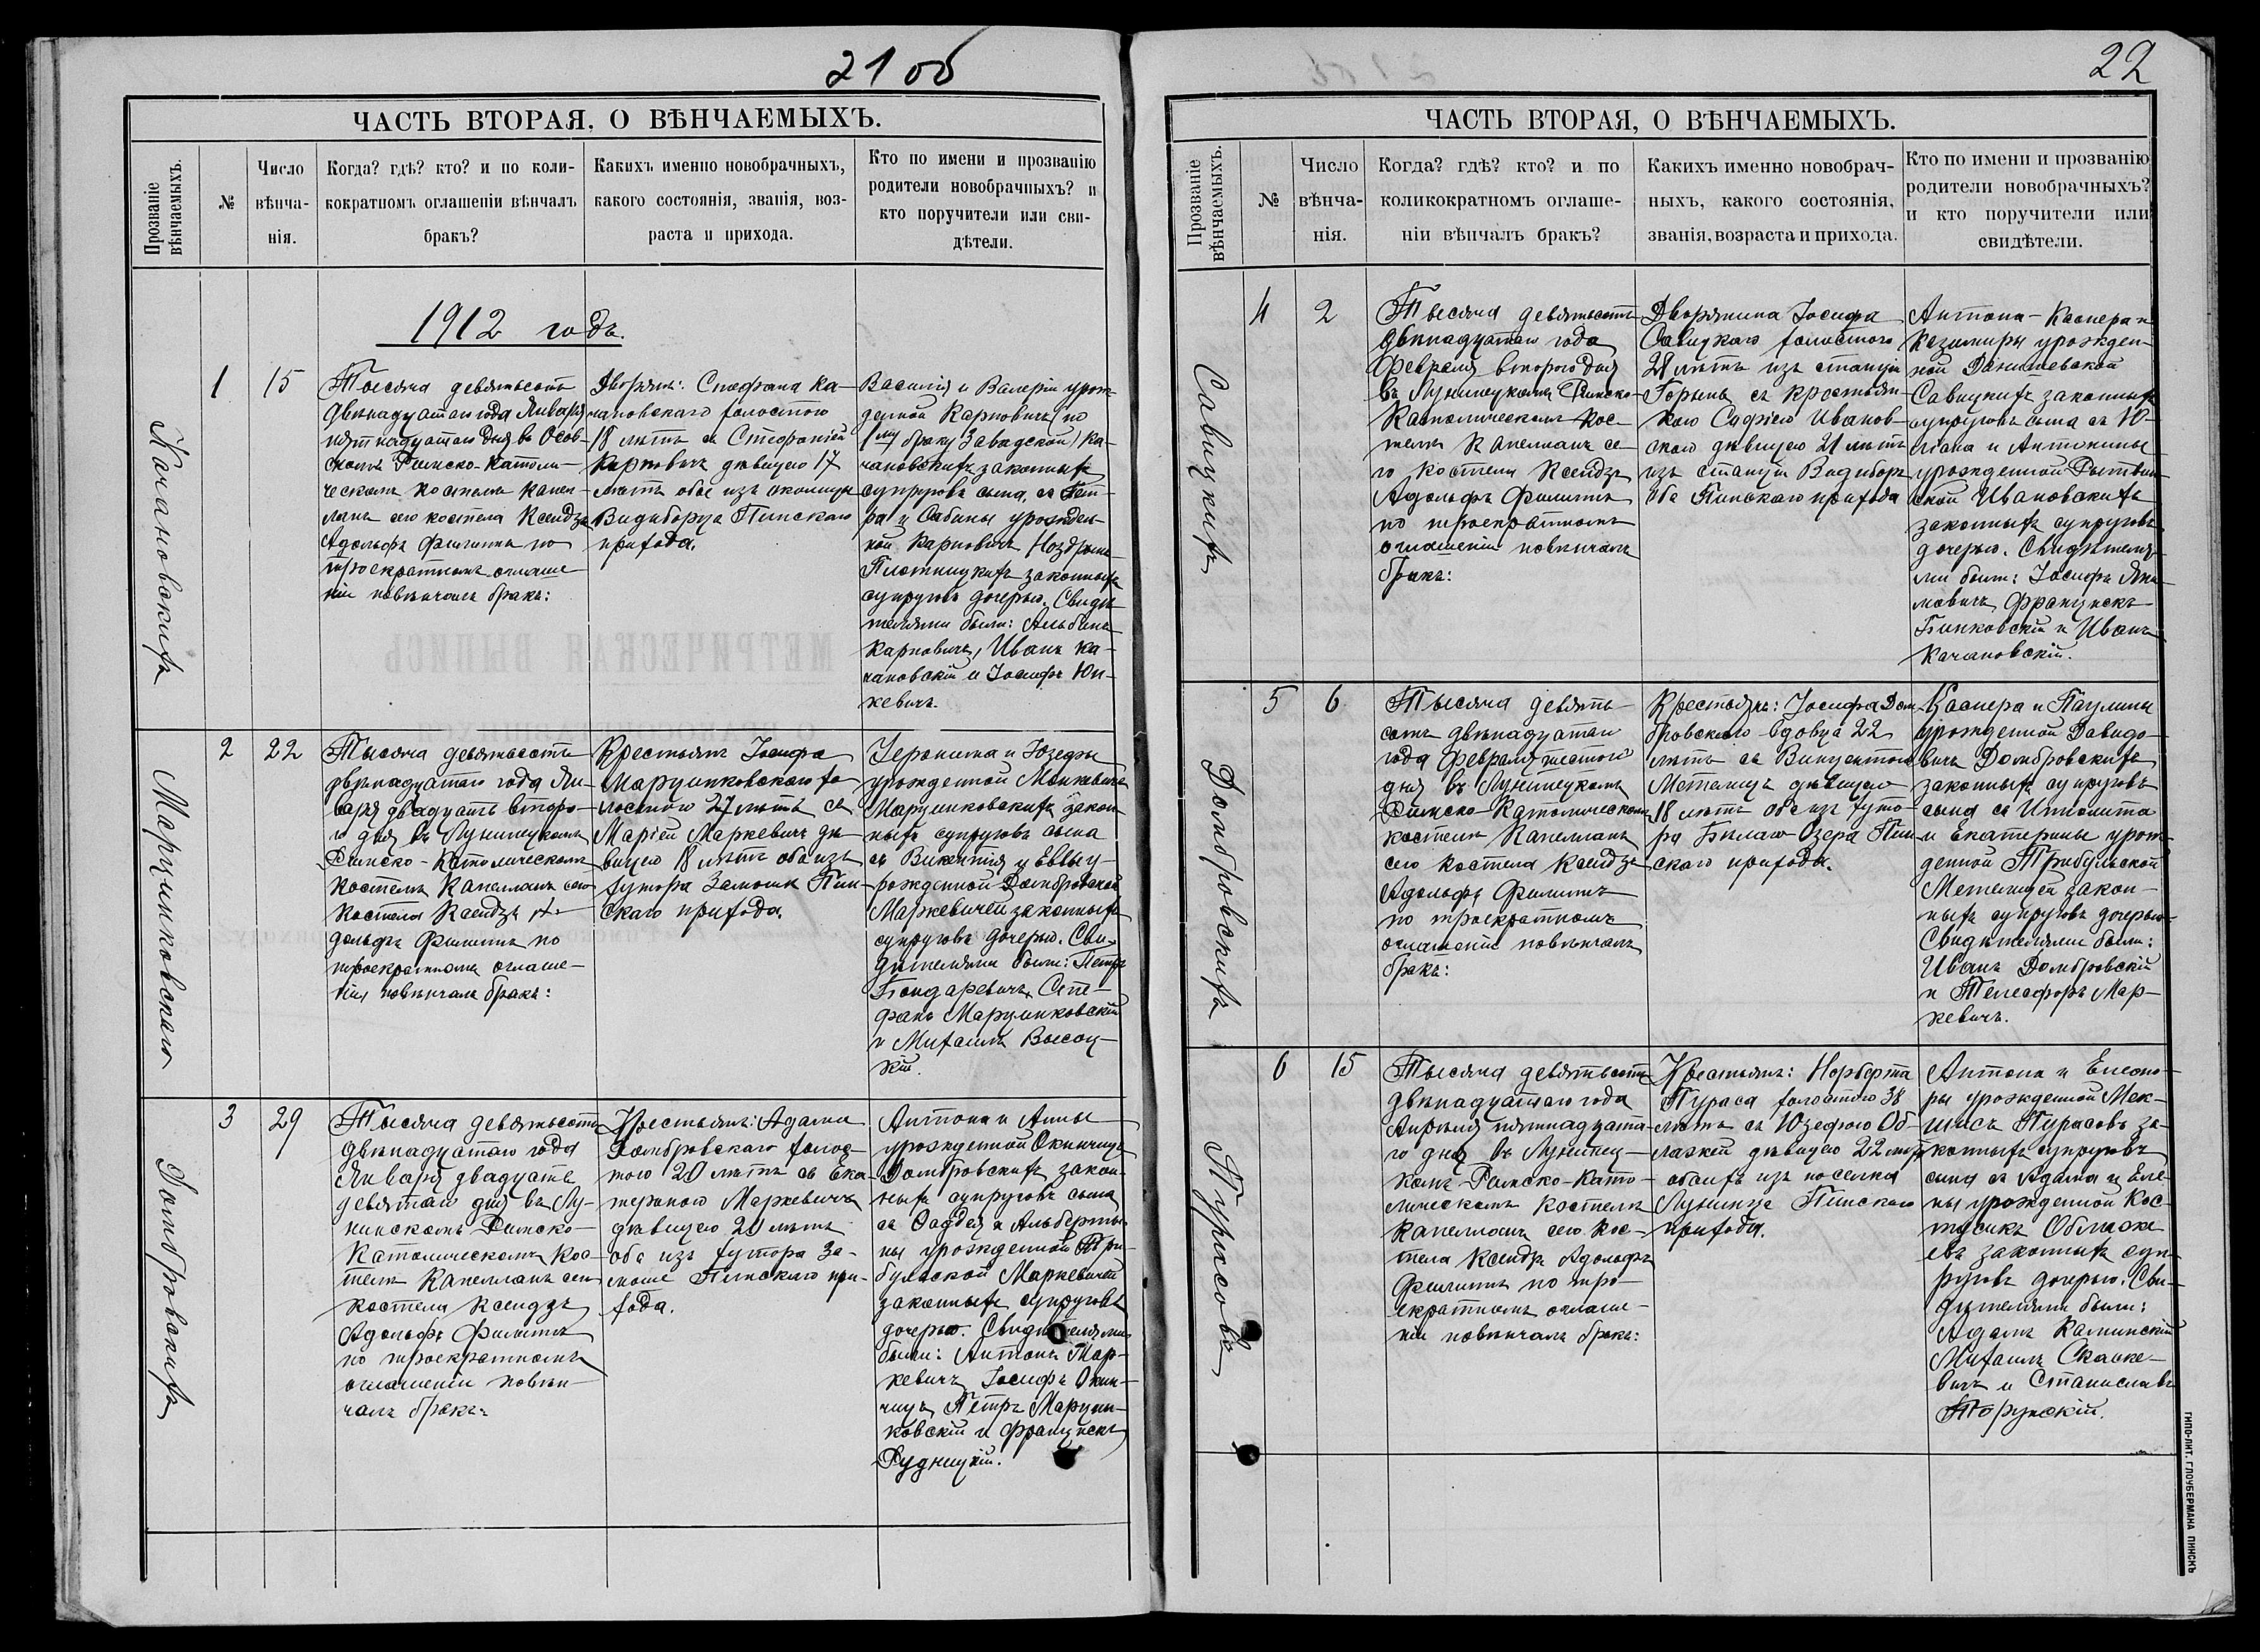 21 об
ЧАСТЬ ВТОРАЯ, О ВѢНЧАЕМЫХЪ.
Прозваніе
вѣнчаемыхъ.
№
Число
вѣнча-
нія.
Когда? гдѣ? кто? и по коли-
кократномъ оглашеніи вѣнчалъ
бракъ?
Какихъ именно новобрачныхъ,
какого состоянія, званія, воз-
раста и прихода.
Кто по имени и прозванію
родители новобрачныхъ? и
кто поручители или сви-
дѣтели.
1912 годъ.
Качановскихъ
1
15
Тысяча девятьсотъ
двѣнадцатаго года Января
пятнадцатаго дня въ Осов-
скомъ Римско-Католи-
ческомъ костелѣ Капел-
ланъ сего костела Ксендзъ
Адольфъ Филиппъ по
троекратномъ оглаше-
ніи повѣнчалъ бракъ:
Дворянъ: Стефана Ка-
чановскаго холостого
18 лѣтъ съ Стефаніей
Карповичъ дѣвицею 17
лѣтъ обое изъ околицы
Видиборца Пинскаго
прихода.
Василія и Валеріи урож-
денной Карповичъ (по
1му браку Завадской) Ка-
чановскихъ законныхъ
супруговъ сына, съ Пет-
ра и Сабины урожден-
ной Карповичъ Ноздринъ-
Плотницкихъ законныхъ
супруговъ дочерью. Свидѣ-
телями были: Альбинъ
Карповичъ, Иванъ Ка-
чановскій и Іосифъ Юш-
кевичъ.
Марцинковскаго
2
22
Тысяча девятьсотъ
двѣнадцатаго года Ян-
варя двадцать второ-
го дня въ Лунинецкомъ
Римско-Католическомъ
костелѣ Капелланъ сего
костела Ксендзъ А-
дольфъ Филиппъ по
троекратномъ оглаше-
ніи повѣнчалъ бракъ:
Крестьянъ Іосифа
Марцинковскаго хо-
лостого 27 лѣтъ съ
Маріей Маркевичъ дѣ-
вицею 18 лѣтъ обое изъ
хутора Замошъ Пин-
скаго прихода.
Іеронима и Юзефы
урожденной Маркевичъ
Марцинковскихъ закон-
ныхъ супруговъ сына
съ Викентія и Еввы у-
рожденной Домбровской
Маркевичей законныхъ
супруговъ дочерью. Сви-
дѣтелями были: Петръ
Бондаревичъ, Сте-
фанъ Марцинковскій
и Михаилъ Высоц-
кій.
Домбровскихъ
3
29
Тысяча девятьсотъ
двѣнадцатаго года
Января двадцать
девятаго дня въ Лу-
нинскомъ Римско-
Католическомъ кос-
телѣ Капелланъ сего
костела Ксендзъ
Адольфъ Филиппъ
по троекратномъ
оглашеніи повѣн-
чалъ бракъ:
Крестьянъ: Адама
Домбровскаго холос-
того 20 лѣтъ съ Ека-
териною Маркевичъ
дѣвицею 20 лѣтъ
оба изъ хутора За-
моше Пинскаго при-
хода.
Антона и Анны
урожденной Окинчицъ
Домбровскихъ закон-
ныхъ супруговъ сына
съ Фаддея и Альберти-
ны урожденной Три-
бульской Маркевичей
законныхъ супруговъ
дочерью. Свидѣтелями
были: Антонъ Мар-
кевичъ, Іосифъ Окин-
чицъ, Петръ Марцин-
ковскій и Францискъ
Рудницкій.
22
ЧАСТЬ ВТОРАЯ, О ВѢНЧАЕМЫХЪ.
Прозваніе
вѣнчаемыхъ.
№
Число
вѣнча-
нія.
Когда? гдѣ? кто? и по
коликократномъ оглаше-
ніи вѣнчалъ бракъ?
Какихъ именно новобрач-
ныхъ, какого состоянія,
званія, возраста и прихода.
Кто по имени и прозванію
родители новобрачныхъ?
и кто поручители или
свидѣтели.
Савицкихъ
4
2
Тысяча девятьсотъ
двѣнадцатаго года
Февраля второго дня
въ Лунинецкомъ Римско-
Католическомъ кос-
телѣ Капелланъ се-
го костела Ксендзъ
Адольфъ Филиппъ
по троекратномъ
оглашеніи повѣнчалъ
бракъ:
Дворянина Іосифа
Савицкаго холостого
28 лѣтъ изъ станціи
Горынь съ крестьян-
кою Софіею Иванов-
скою дѣвицею 21 лѣтъ
изъ станціи Видиборъ
оба Пинскаго прихода
Антона-Каспера и
Казимиры урожден-
ной Данилевской
Савицкихъ законныхъ
супруговъ сына съ Ю-
ліана и Антонины
урожденной
Ивановскихъ
законныхъ супруговъ
дочерью. Свидѣтеля-
ми были: Іосифъ Яки-
мовичъ, Францискъ
Бинковскій и Иванъ
Качановскій.
Домбровскихъ
5
6
Тысяча девять-
сотъ двѣнадцатаго
года Февраля шестого
дня въ Лунинецкомъ
Римско-Католическомъ
костелѣ Капелланъ
сего костела Ксендзъ
Адольфъ Филиппъ
по троекратномъ
оглашеніи повѣнчалъ
бракъ:
Крестьянъ: Іосифа Дом-
бровскаго вдовца 22
лѣтъ съ Винцентою
Метелицъ дѣвицею
18 лѣтъ обое изъ хуто-
ра Бѣлаго Озера Пин-
скаго прихода.
Каспера и Паулины
урожденной Давидо-
вичъ Домбровскихъ
законныхъ супруговъ
сына съ Ипполита
и Екатерины урож-
денной Трибульской
Метелицей закон-
ныхъ супруговъ дочерью.
Свидѣтелями были:
Иванъ Домбровскій
и Телесфоръ Мар-
кевичъ.
Пурасовъ
6
15
Тысяча девятьсотъ
двѣнадцатаго года
Апрѣля пятнадцата-
го дня въ Лунинец-
комъ Римско-Като-
лическомъ костелѣ
капелланъ сего кос-
тела Ксендзъ Адольфъ
Филиппъ по тро-
екратномъ оглаше-
ніи повѣнчалъ бракъ:
Крестьянъ: Норберта
Пураса холостого 38
лѣтъ съ Юзефою Об-
лажей дѣвицею 22 лѣтъ
обоихъ изъ поселка
Лунинца Пинскаго
прихода.
Антона и Елеоно-
ры урожденной Мек-
шисъ Пурасовъ за-
конныхъ супруговъ
сына съ Адама и Еле-
ны урожденной Кос-
тусикъ
законныхъ суп-
руговъ дочерью. Сви-
дѣтелями были:
Адамъ Каминскій
Михаилъ Скавке-
вичъ и Станиславъ
Торунскій.
ТИПО-ЛИТ. ГЛОУБЕРМАНА ПИНСКЪ